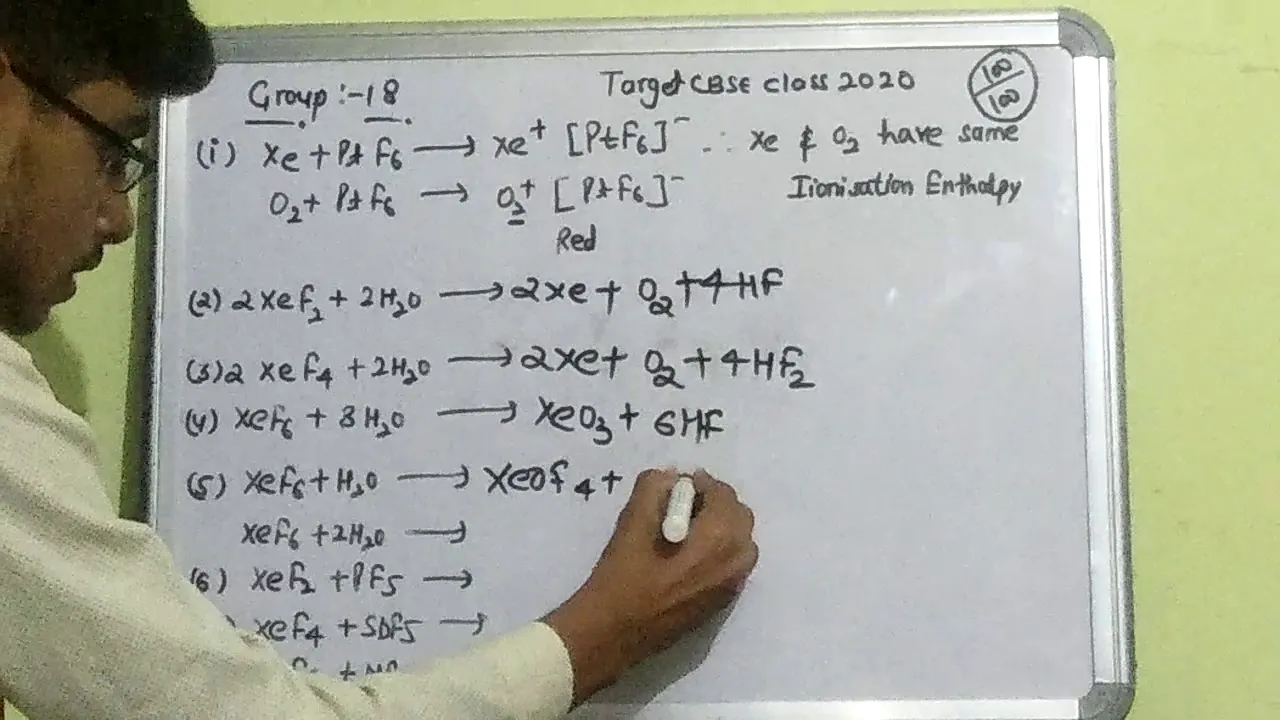 Group :- 18
Target CBSE class 2020
100/100
(i) Xe + Pt F₆ → Xe⁺ [PtF₆]⁻ ∴ Xe & O₂ have same
O₂ + Pt F₆ → O₂⁺ [PtF₆]⁻ Iionisation Enthalpy
Red
(2) 2XeF₂ + 2H₂O → 2Xe + O₂ + 4HF
(3) 2 XeF₄ + 2H₂O → 2Xe + O₂ + 4HF₂
(4) XeF₆ + 3H₂O → XeO₃ + 6HF
(5) XeF₆ + H₂O → XeOF₄ +
XeF₆ + 2H₂O →
(6) XeF₂ + PF₅ →
XeF₄ + SbF₅ →